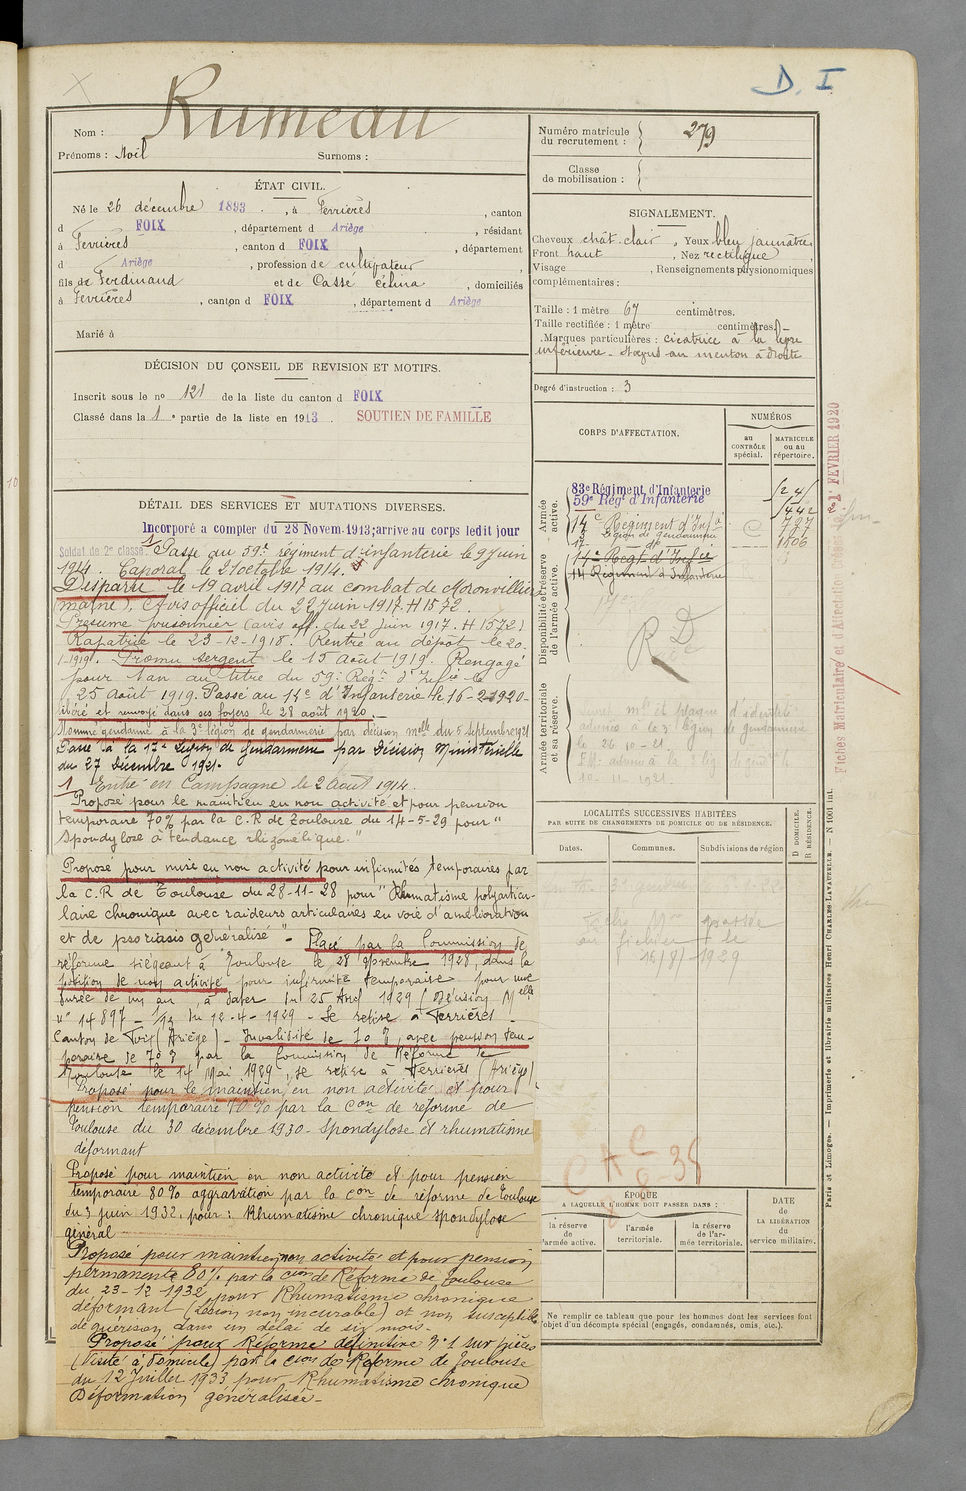 D. I
Rumeau
Nom :
Prénoms : Noël Surnoms :
ÉTAT CIVIL.
Né le 26 décembre 1893, à Ferrières, canton
d FOIX, département d Ariège, résidant
à Ferrières, canton d FOIX, département
d Ariège, profession de cultivateur
fils de Ferdinand et de Cassé Célina, domiciliés
à Ferrières, canton d FOIX, département d Ariège
Marié à
DÉCISION DU CONSEIL DE REVISION ET MOTIFS.
Inscrit sous le no 121 de la liste du canton d FOIX
Classé dans la 1e partie de la liste en 1913. SOUTIEN DE FAMILLE
DÉTAIL DES SERVICES ET MUTATIONS DIVERSES.
Incorporé a compter du 28 Novem. 1913; arrive au corps ledit jour
Soldat de 2e classe. Passé au 59e régiment d'infanterie le 9 juin
1914. Caporal le 21 octobre 1914.
Disparu le 19 avril 1917 au combat de Moronvilliers
(marne). Avis officiel du 22 juin 1917. H 1572.
Présumé prisonnier (avis off. du 22 juin 1917. H 1572)
Rapatrié le 23-12-1918. Rentré au dépôt le 20
1-1919. Promu sergent le 15 août 1919. Rengagé
pour 1 an au titre du 59e Régt d'Infie le
25 août 1919. Passé au 14e d'Infanterie le 16-2-1920-
libéré et renvoyé dans ses foyers le 28 août 1920.
Nommé gendarme à la 3e légion de gendarmerie par décision melle du 5 septembre 1921
Passé à la 17e Légion de Gendarmerie par Décision Ministérielle
du 27 Décembre 1921.
1 Entré en Campagne le 2 Août 1914.
Proposé pour le maintien en non activité et pour pension
temporaire 70% par la C.R de Toulouse du 14-5-29 pour "
Spondylose à tendance rhizomélique. "
Proposé pour mise en non activité pour infirmités temporaires par
la C.R de Toulouse du 28-11-28 pour " Rhumatisme polyarticu-
laire chronique avec raideurs articulaires en voie d'amélioration
et de psoriasis généralisé " - Placé par la Commission de
réforme siégeant à Toulouse le 28 novembre 1928, dans la
position de non activité pour infirmité temporaire pour une
durée de un an, à dater du 25 Avril 1929 (Décision Melle
n° 14897 - du 12-4-1929 - Se retire à Ferrières -
Canton de Foix (Ariège) - Invalidité de 70%, avec pension tem-
poraire de 70% par la Commission de Réforme de
Toulouse le 14 Mai 1929, se retire à Ferrières (Ariège)
Proposé pour le maintien en non activité et pour
pension temporaire 70% par la Con de réforme de
Toulouse du 30 décembre 1930 - Spondylose et rhumatisme
déformant
Proposé pour maintien en non activité et pour pension
temporaire 80% aggravation par la Con de réforme de Toulouse
du 3 juin 1932. pour : Rhumatisme chronique spondylose
général
Proposé pour maintien non activité et pour pension
permanente 80% par la Cion de Réforme de Toulouse
du 23-12 1932 pour Rhumatisme chronique
déformant (Lésion non incurable) et non susceptible
de guérison dans un délai de six mois.
Proposé pour Réforme définitive N°1 sur pièces
(Visité à domicile) par la Cion de Réforme de Toulouse
du 12 Juillet 1933 pour Rhumatisme chronique
Déformation généralisée -
Numéro matricule
du recrutement : 279
Classe
de mobilisation :
SIGNALEMENT.
Cheveux chât. clair, Yeux bleu jaunâtre,
Front haut, Nez rectiligne,
Visage, Renseignements physionomiques
complémentaires :
Taille : 1 mètre 67 centimètres.
Taille rectifiée : 1 mètre centimètres.
Marques particulières : cicatrice à la lèvre
inférieure - Noevus au menton à droite
Degré d'instruction : 3
CORPS D'AFFECTATION.
NUMÉROS
au
CONTRÔLE
spécial.
MATRICULE
ou au
répertoire.
Armée
active.
83e Régiment d'Infanterie
59e Rég. d'Infanterie
14e Régiment d'Infie
Légion de gendarmerie
Disponibilité et réserve
de l'armée active.
14e Regt d'Infie
14 Régiment d'Infanterie
R D
Armée territoriale
et sa réserve.
Fiches Matriculaire et d'Affectation
1er FEVRIER 1920
LOCALITÉS SUCCESSIVES HABITÉES
PAR SUITE DE CHANGEMENTS DE DOMICILE OU DE RÉSIDENCE.
Dates.
Communes.
Subdivisions de région
D DOMICILE.
R RÉSIDENCE.
CAC
8-38
ÉPOQUE
A LAQUELLE L'HOMME DOIT PASSER DANS :
la réserve
de
l'armée active.
l'armée
territoriale.
la réserve
de l'ar-
mée territoriale.
DATE
de
LA LIBÉRATION
du
service militaire.
Ne remplir ce tableau que pour les hommes dont les services font
l'objet d'un décompte spécial (engagés, condamnés, omis, etc.).
Paris et Limoges. — Imprimerie et librairie militaires Henri CHARLES-LAVAUZELLE. — N 1001 int.